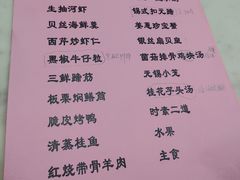 生抽河虾
锡式扣无锡
贝丝海鲜羹
姜葱珍宝蟹
西芹炒虾仁
银丝扇贝皇
黑椒牛仔粒
菌菇排骨鸡块汤
三鲜蹄筋
无锡小笼
板栗焖鳝筒
桂花芋头汤
脆皮烤鸭
时素二道
清蒸桂鱼
水果
红烧带骨羊肉
主食